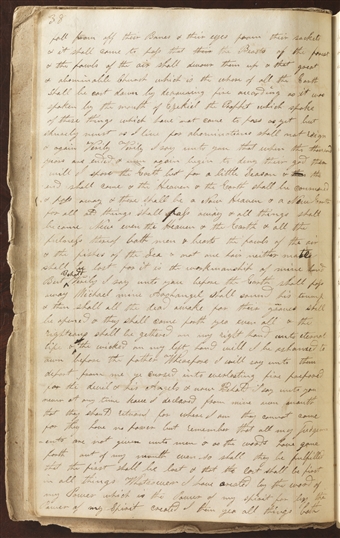 38
fall from off their Bones & their eyes from their sockets
& it shall come to pass that the Beasts of the forest
& the fowls of the air shall devour them up & that great
& abominable Church which is the whore of all the Earth
shall be cast down by devouring fire according as it was
spoken by the mouth of Ezekiel the Prophet which spoke
of these things which have not come to pass as yet but
surely must as I live for abominations shall not reign
& again Verily Verily I say unto you that when the thousand
years are ended & men again begin to deny their god then
will I spare the Earth but for a little Season & the
end shall come & the Heaven & the Earth shall be consumed
& pass away & there shall be a New Heaven & a New Earth
for all old things shall pass away & all things shall
become New even the Heaven & the Earth & all the
fulness thereof both men & beasts the fowls of the air
& the fishes of the Sea & not one hair neither mote
shall be lost for it is the workmanship of mine hand
But Verily I say unto you before the Earth shall pass
away Michael mine Archangel shall sound his trump
& then shall all the dead awake for their graves shall
be opened & they shall come forth yea even all & the
righteous shall be gethered on my right hand unto eternal
life & the wicked on my left hand will I be ashamed to
own before the father Wherefore I will say unto them
depart from me ye cursed into everlasting fire prepared
for the devil & his Angels & now Behold I say unto you
never at any time have I declared from mine own mouth
that they should return for where I am they cannot come
for they have no power but remember that all my judgm-
ents are not given unto men & as the words have gone
forth out of my mouth even so shall they be fulfilled
that the first shall be last & that the last shall be first
in all things Whatsoever I have created by the word of
my Power which is the Power of my spirit for by the
power of my Spirit created I them yea all things both